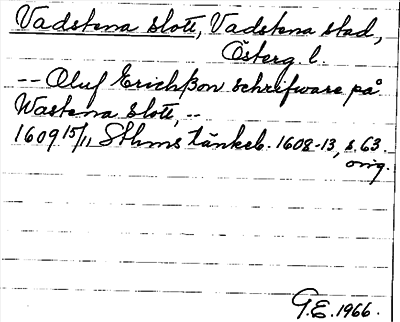 Vadstena slott, Vadstena stad,
Österg. l.
-- Oluf Erichßon schrifware på
Wastena Slott, --
1609 15/11, Sthms tänkeb. 1608-13, s. 63.
orig.
G.E. 1966.